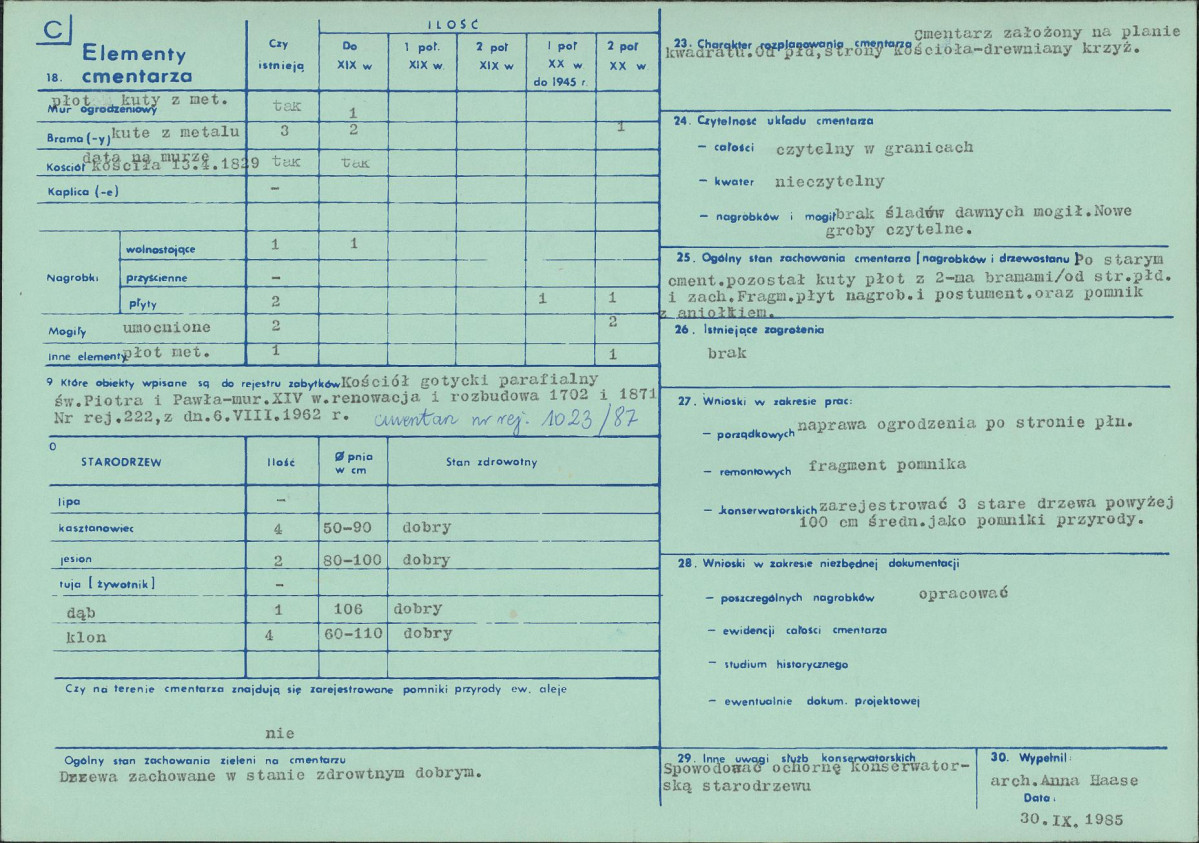 C
Elementy
18. cmentarza
Czy
istnieją
ILOŚĆ
Do
XIX w
1 poł.
XIX w
2 poł
XIX w
1 poł
XX w
do 1945 r.
2 poł
XX w.
płot kuty z met.
Mur ogrodzeniowy tak 1
Brama (-y) kute z metalu 3 2 1
data na murze
Kościół kościła 13.4.1829 tak tak
Kaplica (-e) -
Nagrobki
wolnostojące 1 1
przyścienne -
płyty 2 1 1
Mogiły umocnione 2 2
Inne elementy płot met. 1 1
9 Które obiekty wpisane są do rejestru zabytków Kościół gotycki parafialny
św.Piotra i Pawła-mur.XIV w.renowacja i rozbudowa 1702 i 1871
Nr rej.222,z dn.6.VIII.1962 r. cmentarz nr rej. 1023/87
0
STARODRZEW Ilość Ø pnia
w cm Stan zdrowotny
lipa -
kasztanowiec 4 50-90 dobry
jesion 2 80-100 dobry
tuja [żywotnik] -
dąb 1 106 dobry
klon 4 60-110 dobry
Czy na terenie cmentarza znajdują się zarejestrowane pomniki przyrody ew. aleje
nie
Ogólny stan zachowania zieleni na cmentarzu
Drzewa zachowane w stanie zdrowtnym dobrym.
23. Charakter rozplanowania cmentarza Cmentarz założony na planie
kwadratu.Od płd,strony kościoła-drewniany krzyż.
24. Czytelność układu cmentarza
- całości czytelny w granicach
- kwater nieczytelny
- nagrobków i mogił brak śladów dawnych mogił.Nowe
groby czytelne.
25. Ogólny stan zachowania cmentarza [nagrobków i drzewostanu] Po starym
cment.pozostał kuty płot z 2-ma bramami/od str.płd.
i zach.Fragm.płyt nagrob.i postument.oraz pomnik
z aniołkiem.
26. Istniejące zagrożenia
brak
27. Wnioski w zakresie prac:
- porządkowych naprawa ogrodzenia po stronie płn.
- remontowych fragment pomnika
- konserwatorskich zarejestrować 3 stare drzewa powyżej
100 cm średn.jako pomniki przyrody.
28. Wnioski w zakresie niezbędnej dokumentacji
- poszczególnych nagrobków opracować
- ewidencji całości cmentarza
- studium historycznego
- ewentualnie dokum. projektowej
29. Inne uwagi służb konserwatorskich
Spowodować ochornę konserwator-
ską starodrzewu
30. Wypełnił:
arch.Anna Haase
Data:
30.IX.1985